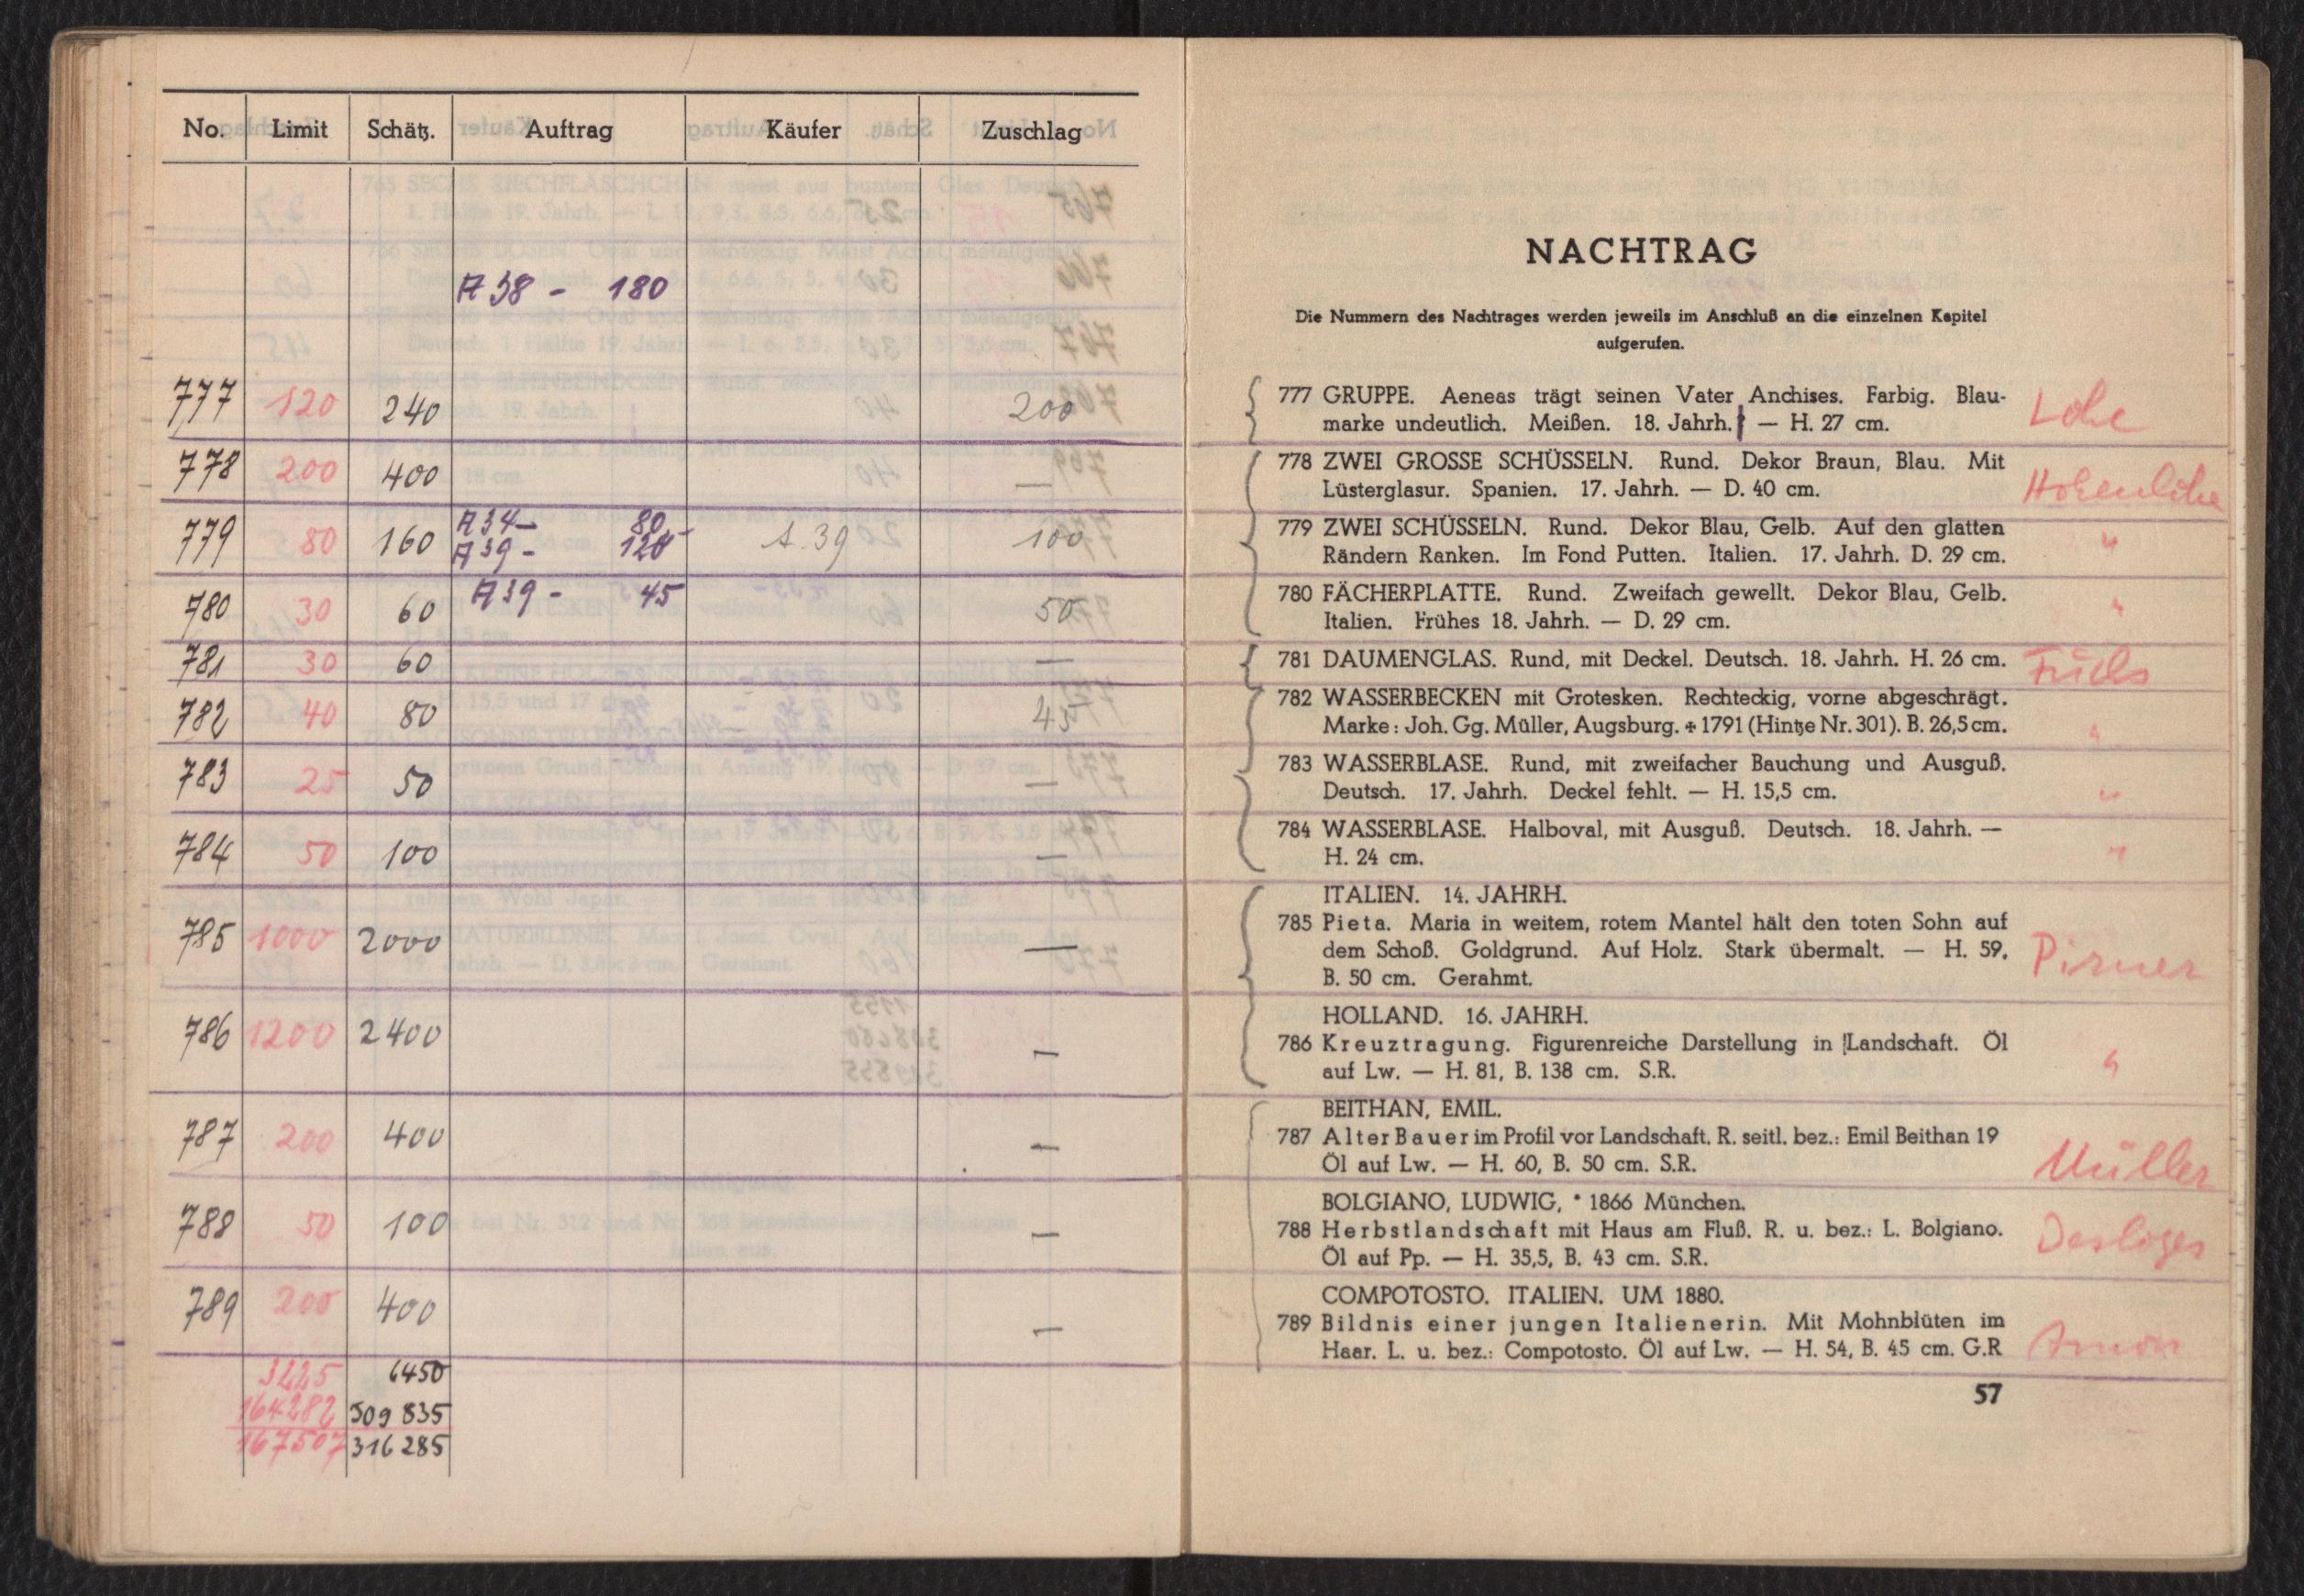 No. Limit Schätz. Auftrag Käufer Zuschlag
A 38 - 180
777 120 240 200
778 200 400 —
779 80 160 A 34 - 80
A 39 - 120 A. 39 100
780 30 60 A 39 - 45 50
781 30 60 —
782 40 80 45
783 25 50 —
784 50 100 —
785 1000 2000 —
786 1200 2400 —
787 200 400 —
788 50 100 —
789 200 400 —
3225 6450
164282 309 835
167507 316 285
NACHTRAG
Die Nummern des Nachtrages werden jeweils im Anschluß an die einzelnen Kapitel
aufgerufen.
777 GRUPPE. Aeneas trägt seinen Vater Anchises. Farbig. Blau-
marke undeutlich. Meißen. 18. Jahrh. — H. 27 cm.
778 ZWEI GROSSE SCHÜSSELN. Rund. Dekor Braun, Blau. Mit
Lüsterglasur. Spanien. 17. Jahrh. — D. 40 cm. Hohenlohe
779 ZWEI SCHÜSSELN. Rund. Dekor Blau, Gelb. Auf den glatten
Rändern Ranken. Im Fond Putten. Italien. 17. Jahrh. D. 29 cm. "
780 FÄCHERPLATTE. Rund. Zweifach gewellt. Dekor Blau, Gelb.
Italien. Frühes 18. Jahrh. — D. 29 cm. "
781 DAUMENGLAS. Rund, mit Deckel. Deutsch. 18. Jahrh. H. 26 cm. Fuchs
782 WASSERBECKEN mit Grotesken. Rechteckig, vorne abgeschrägt.
Marke: Joh. Gg. Müller, Augsburg. + 1791 (Hintze Nr. 301). B. 26,5 cm. "
783 WASSERBLASE. Rund, mit zweifacher Bauchung und Ausguß.
Deutsch. 17. Jahrh. Deckel fehlt. — H. 15,5 cm. "
784 WASSERBLASE. Halboval, mit Ausguß. Deutsch. 18. Jahrh. —
H. 24 cm. "
ITALIEN. 14. JAHRH.
785 Pieta. Maria in weitem, rotem Mantel hält den toten Sohn auf
dem Schoß. Goldgrund. Auf Holz. Stark übermalt. — H. 59, Pirner
B. 50 cm. Gerahmt.
HOLLAND. 16. JAHRH.
786 Kreuztragung. Figurenreiche Darstellung in Landschaft. Öl
auf Lw. — H. 81, B. 138 cm. S.R. "
BEITHAN, EMIL.
787 Alter Bauer im Profil vor Landschaft. R. seitl. bez.: Emil Beithan 19
Öl auf Lw. — H. 60, B. 50 cm. S.R. Müller
BOLGIANO, LUDWIG, * 1866 München.
788 Herbstlandschaft mit Haus am Fluß. R. u. bez.: L. Bolgiano. Desloges
Öl auf Pp. — H. 35,5, B. 43 cm. S.R.
COMPOTOSTO. ITALIEN. UM 1880.
789 Bildnis einer jungen Italienerin. Mit Mohnblüten im
Haar. L. u. bez.: Compotosto. Öl auf Lw. — H. 54, B. 45 cm. G.R
57